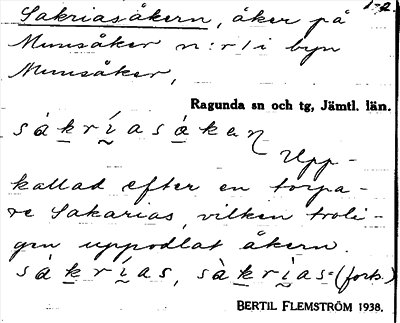 1-2.
Sakriasåkern, åker på
Munsåker n:r 1 i byn
Munsåker,
Ragunda sn och tg, Jämtl. län.
sàkríasåkeṇ
Upp-
kallad efter en torpa-
re Sakarias, vilken troli-
gen uppodlat åkern.
sàkrías, sàkrìas=(forts.)
BERTIL FLEMSTRÖM 1938.